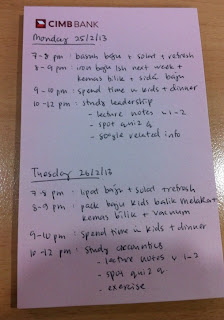 CIMB BANK
Monday 25/2/13
7-8 pm : basuh baju + solat + refresh
8-9 pm : iron baju 1sh next week +
kemas bilik + sidai baju
9-10 pm : spend time w kids + dinner
10-12 pm : study leadership
- lecture notes w 1-2
- spot quiz q
- google related info
Tuesday 26/2/13
7-8 pm : lipat baju + solat + refresh
8-9 pm : pack baju kids balik melaka +
kemas bilik + vacuum
9-10 pm : spend time w kids + dinner
10-12 pm : study
- lecture notes w 1-2
- spot quiz q
- exercise